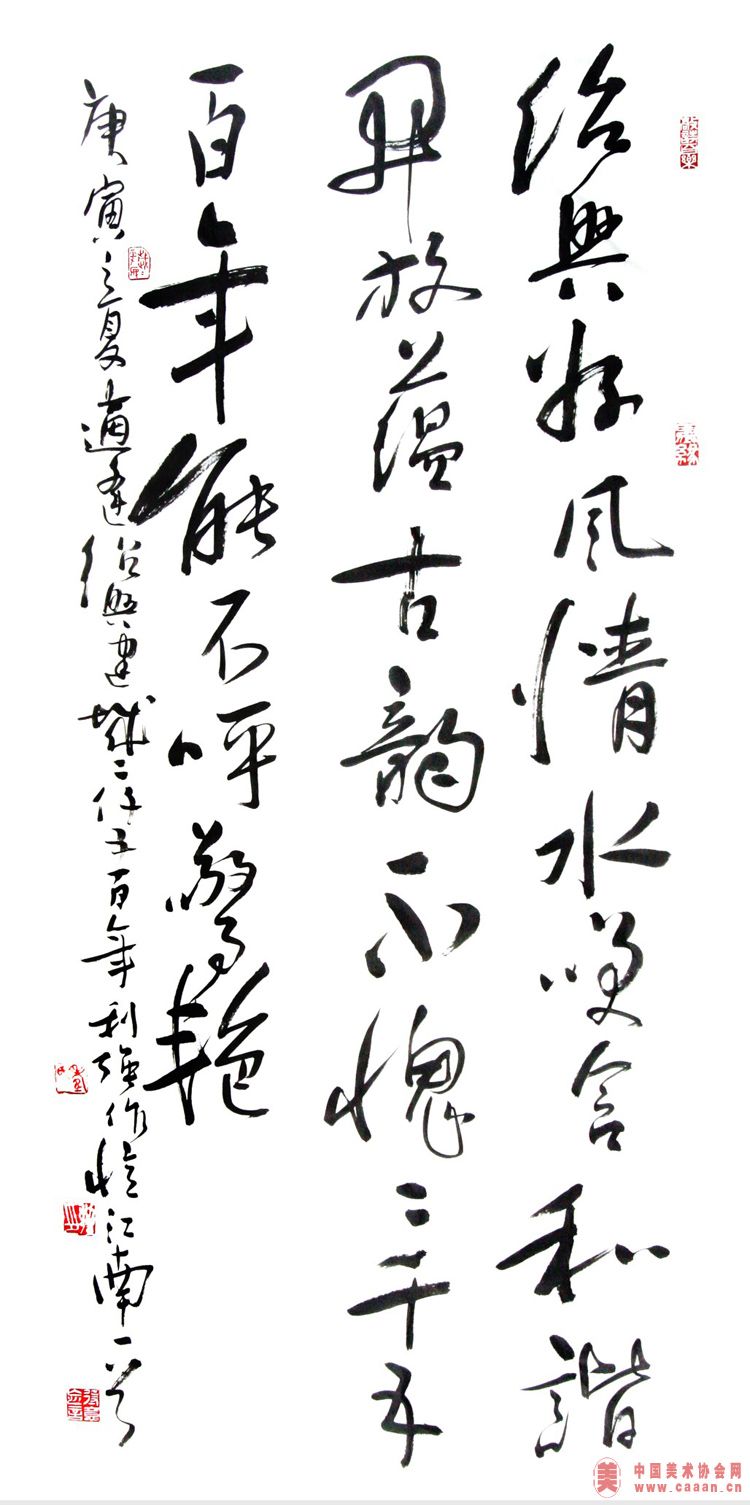 绍興好风情水含和諧
开放蕴古韵不愧二千五
百年能不呼驚艳
庚寅之夏適逢绍興建城二仟五百年利强作憶江南一首
美 中国美术协会网
www.caaan.cn